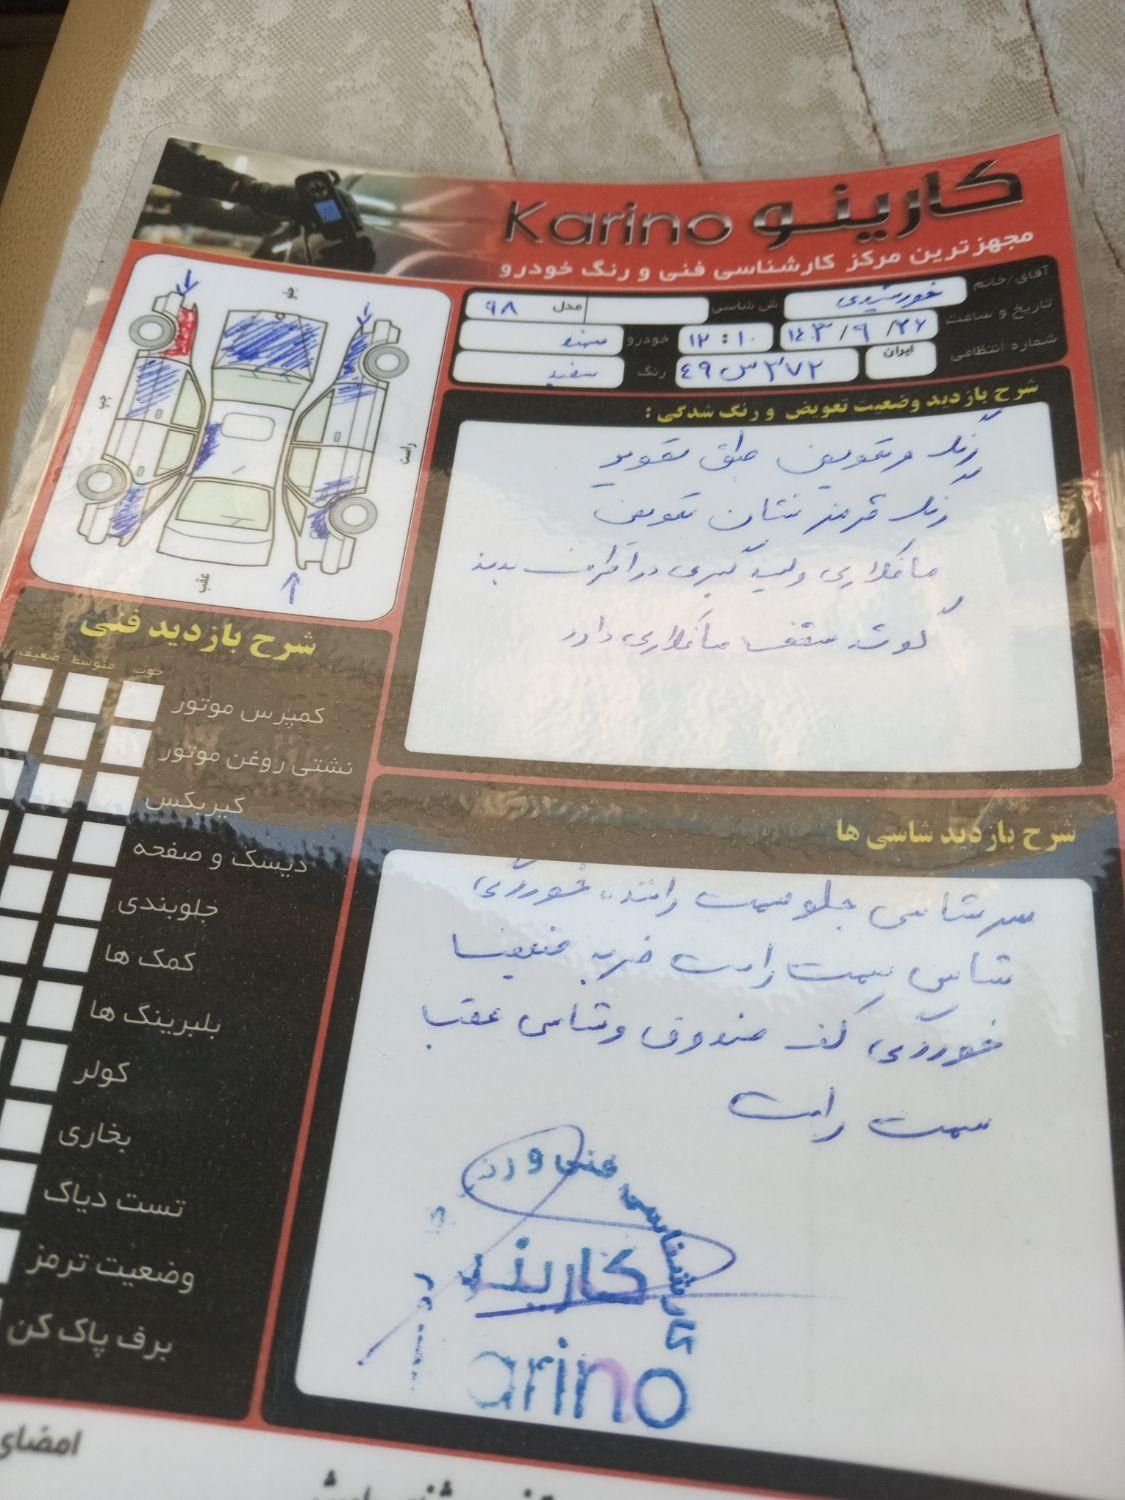 کارینو Karino
مجهزترین مرکز کارشناسی فنی و رنگ خودرو
آقای/خانم خورشیدی ش شاسی مدل ۹۸
تاریخ و ساعت ۱۴۰۳/۹/۲۶ ۱۲:۱۰ خودرو سمند
شماره انتظامی ایران ۳۷۲س۴۹ رنگ سفید
جلو
چپ
راست
عقب
شرح بازدید وضعیت تعویض و رنگ شدگی :
رنگ و تعویض طبق تصویر
رنگ قرمز نشان تعویض
صافکاری و لیسه گیری در اطراف بدنه
گوشه سقف صافکاری دارد
شرح بازدید شاسی ها
سرشاسی جلو سمت راننده خوردگی
شاسی سمت راست ضربه
خوردگی کف صندوق و شاسی عقب
سمت راست
کارشناسی فنی و رنگ
کارینو
arino
شرح بازدید فنی
خوب متوسط ضعیف
کمپرس موتور
نشتی روغن موتور
گیربکس
دیسک و صفحه
جلوبندی
کمک ها
بلبرینگ ها
کولر
بخاری
تست دیاگ
وضعیت ترمز
برف پاک کن
امضای